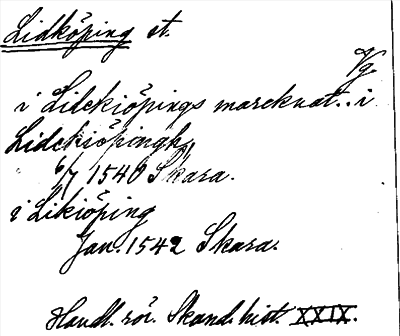 Lidköping st.
Vg
i Lilckiöpings marcknat.. i
Lidckiöpingh
6/7 1540 Skara.
i Likiöping
Jan. 1542 Skara.
Handl. rör. Skand. hist. XXIX.